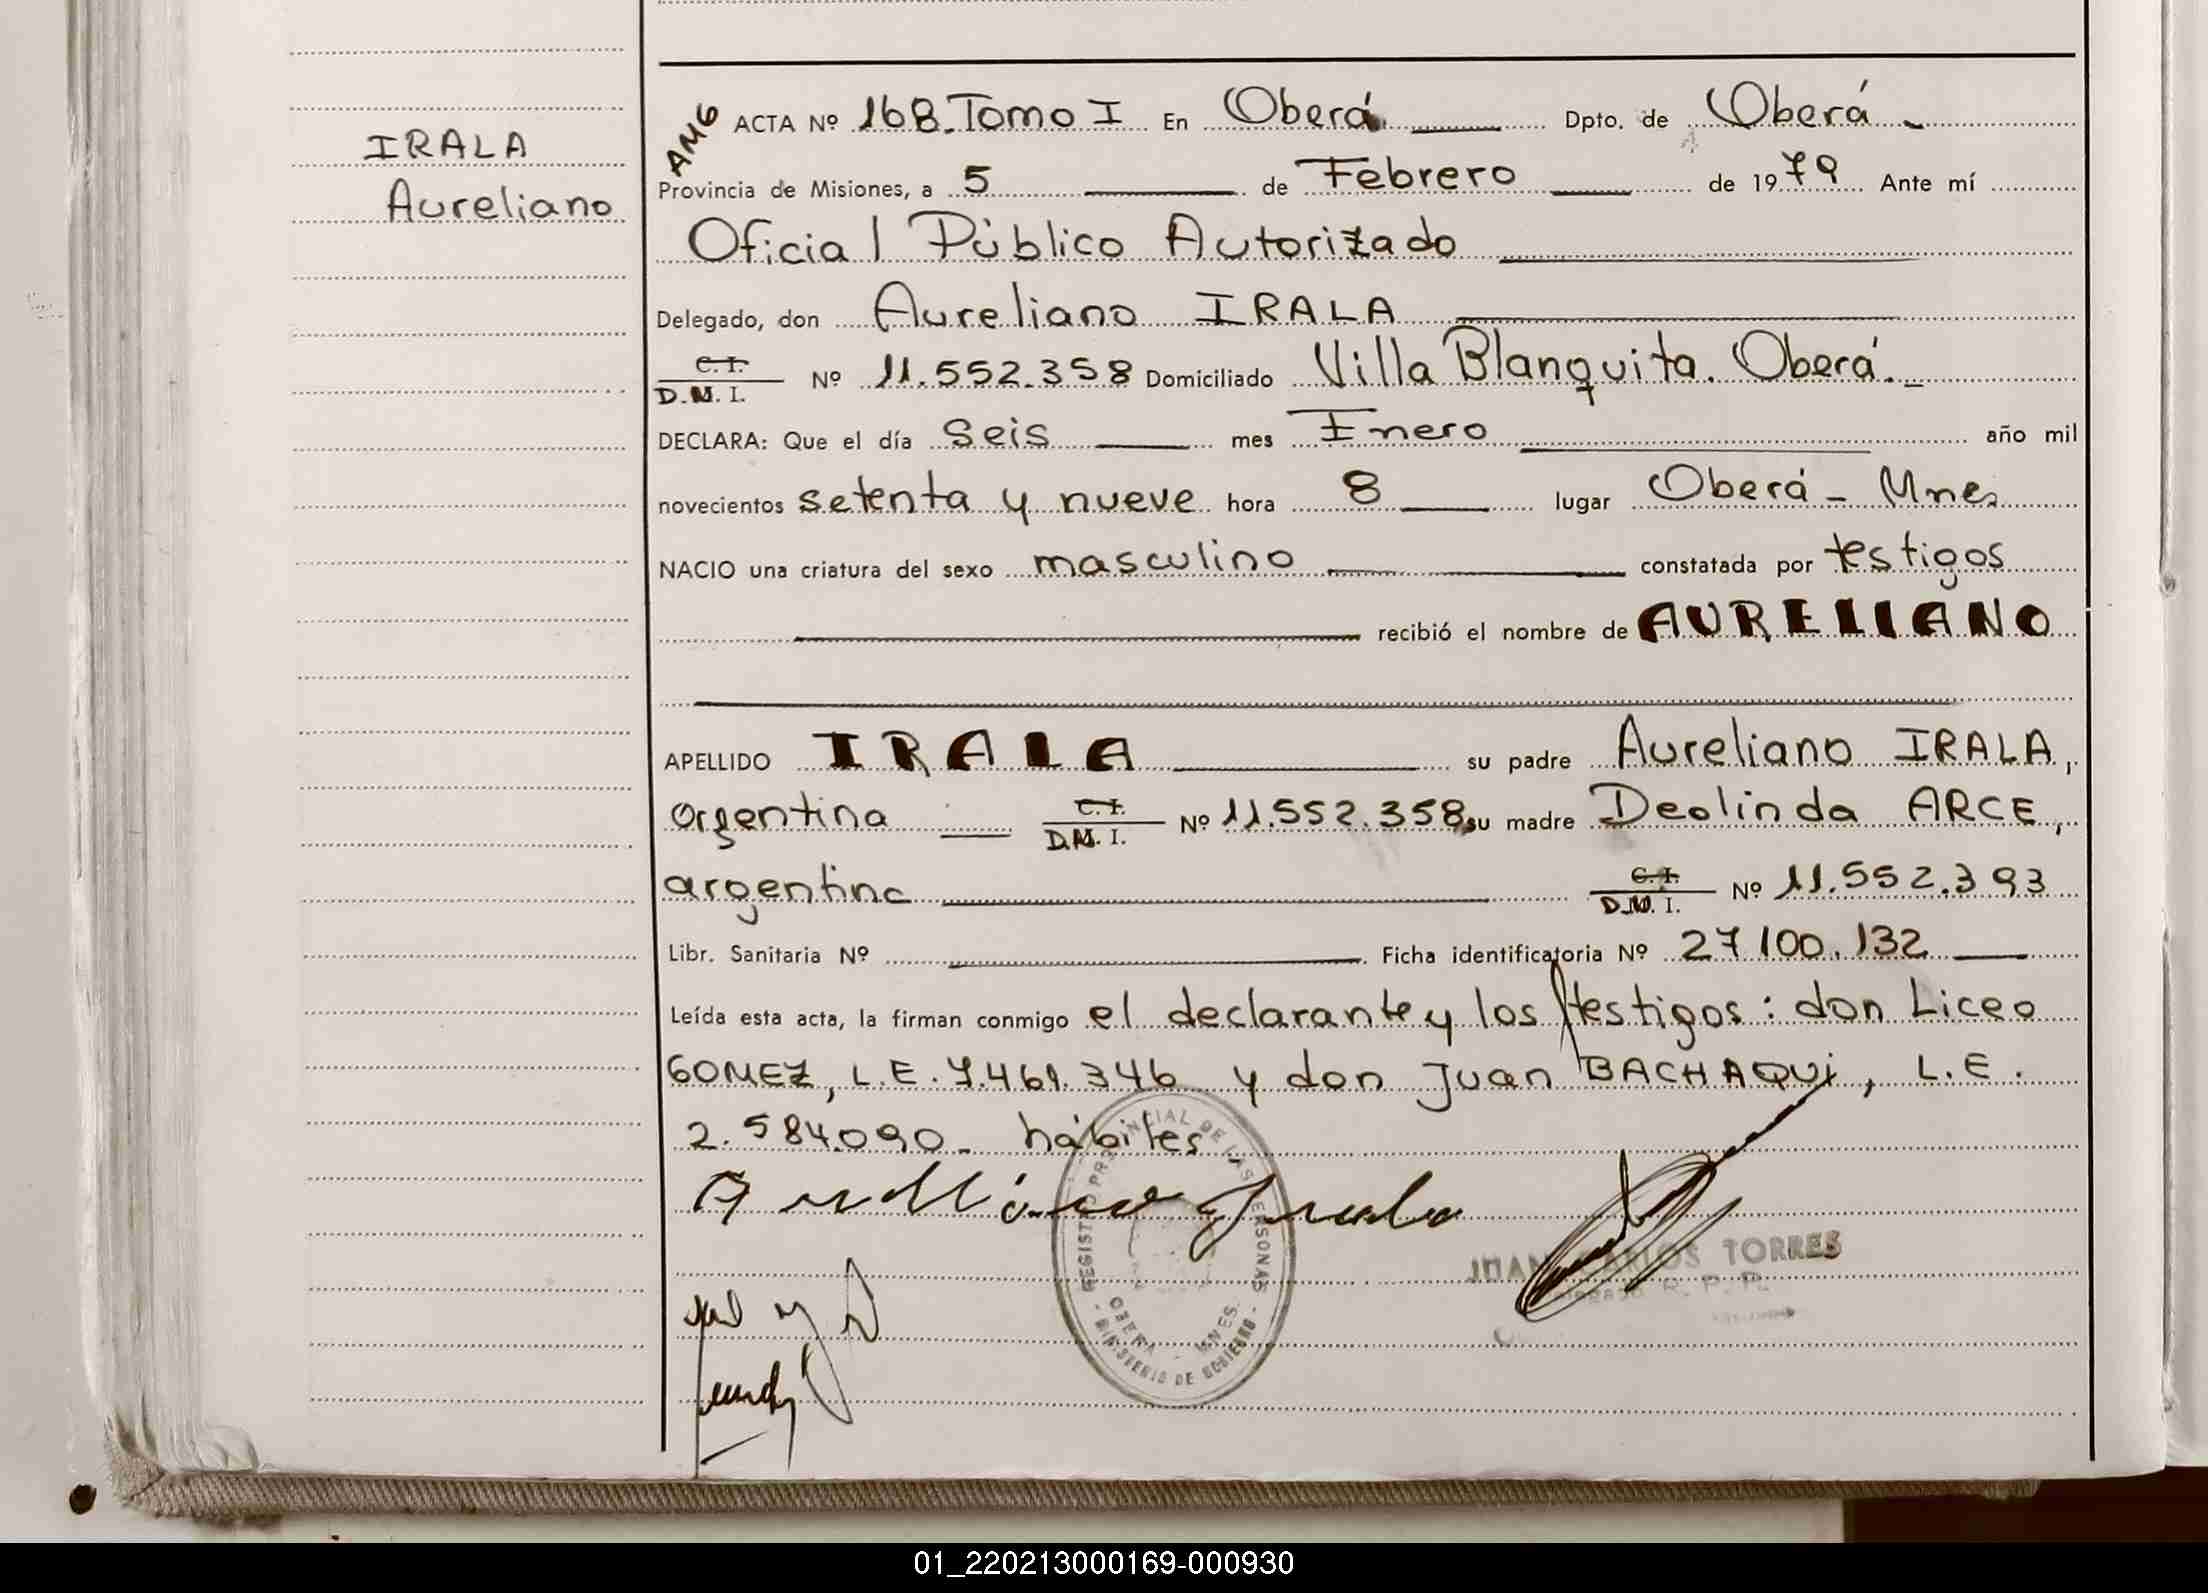 IRALA
Aureliano
AMG
ACTA Nº 168. Tomo I En Oberá Dpto. de Oberá.-
Provincia de Misiones, a 5 de Febrero de 1979 Ante mí
Oficial Público Autorizado
Delegado, don Aureliano IRALA
C. I.
D.N.I. Nº 11.552.358 Domiciliado Villa Blanquita. Oberá.-
DECLARA: Que el día seis mes Enero año mil
novecientos setenta y nueve hora 8 lugar Oberá - Mnes
NACIO una criatura del sexo masculino constatada por testigos
recibió el nombre de AURELIANO
APELLIDO IRALA su padre Aureliano IRALA,
argentina C. I. D.N.I. Nº 11.552.358 su madre Deolinda ARCE,
argentina C. I. D.N.I. Nº 11.552.393
Libr. Sanitaria Nº Ficha identificatoria Nº 27100.132
Leída esta acta, la firman conmigo el declarante y los testigos: don Liceo
GOMEZ, L.E. 7.461.346 y don Juan BACHAQUI, L.E.
2.584.090- hábiles
REGISTRO PROVINCIAL DE LAS PERSONAS
OBERA - MNES.
MINISTERIO DE GOBIERNO
JUAN CARLOS TORRES
R. P. P.
01_220213000169-000930